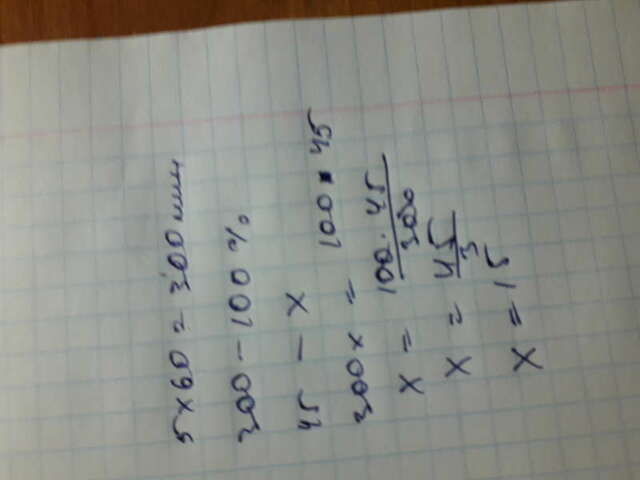 5 x 60 = 300 мин
300 - 100 %
45 - x
300x = 100 • 45
x = 100 · 45 / 300
x = 45 / 3
x = 15